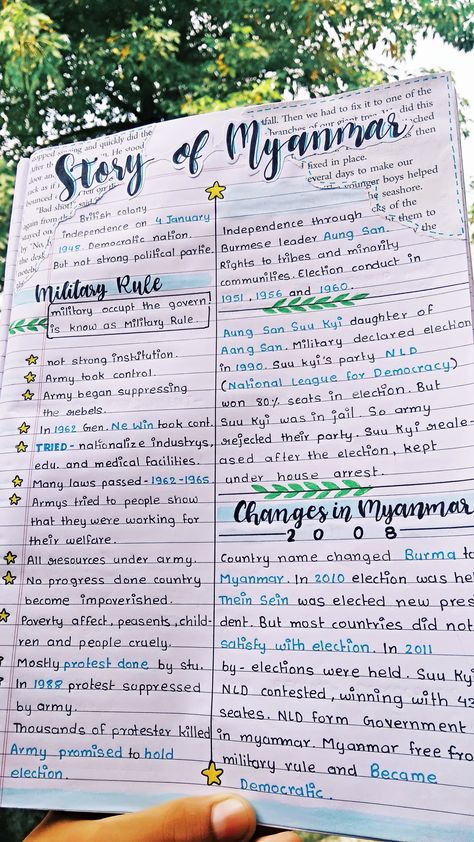 Story of Myanmar
British colony
independence on 4 January
1948. Democratic nation.
But not strong political partie.
Military Rule
military occupt the govern
is know as Military Rule.
not strong institution.
Army took control.
Army began suppressing
the rebels.
In 1962 Gen. Ne Win took cont.
TRIED - nationalize industrys,
edu. and medical facilities.
Many laws passed - 1962-1965
Armys tried to people show
that they were working for
their welfare.
All resources under army.
No progress done country
become impoverished.
Poverty affect, peasents, child-
ren and people cruely.
Mostly protest done by stu.
In 1988 protest suppressed
by army.
Thousands of protester killed
Army promised to hold
election.
Independence through
Burmese leader Aung San.
Rights to tribes and minority
communities. Election conduct in
1951, 1956 and 1960.
Aung San Suu Kyi daughter of
Aang San. Military declared election
in 1990. Suu kyi's party NLD
(National League for Democracy)
won 80% seats in election. But
Suu Kyi was in jail. So army
rejected their party. Suu Kyi reale-
ased after the election, kept
under house arrest.
Changes in Myanmar
2008
Country name changed Burma to
Myanmar. In 2010 election was he
Thein Sein was elected new pres
dent. But most countries did not
satisfy with election. In 2011
by-elections were held. Suu Ky
NLD contested, winning with 43
seates. NLD form Government
in myanmar. Myanmar free fro
military rule and Became
Democratic.
fall. Then we had to fix it to one of the
branches of our giant tree. We did this
then
fixed in place.
several days to make our
younger boys helped
the seashore.
of the
them to
the